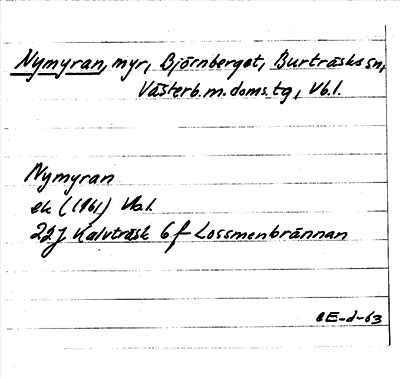 Nymyran, myr, Björnberget, Burträsks sn,
Västerb. m. doms. tg, Vb.l.
Nymyran
ek (1961) Vb.l.
22J Kalvträsk 6f Lossmenbrännan
CE-d-63